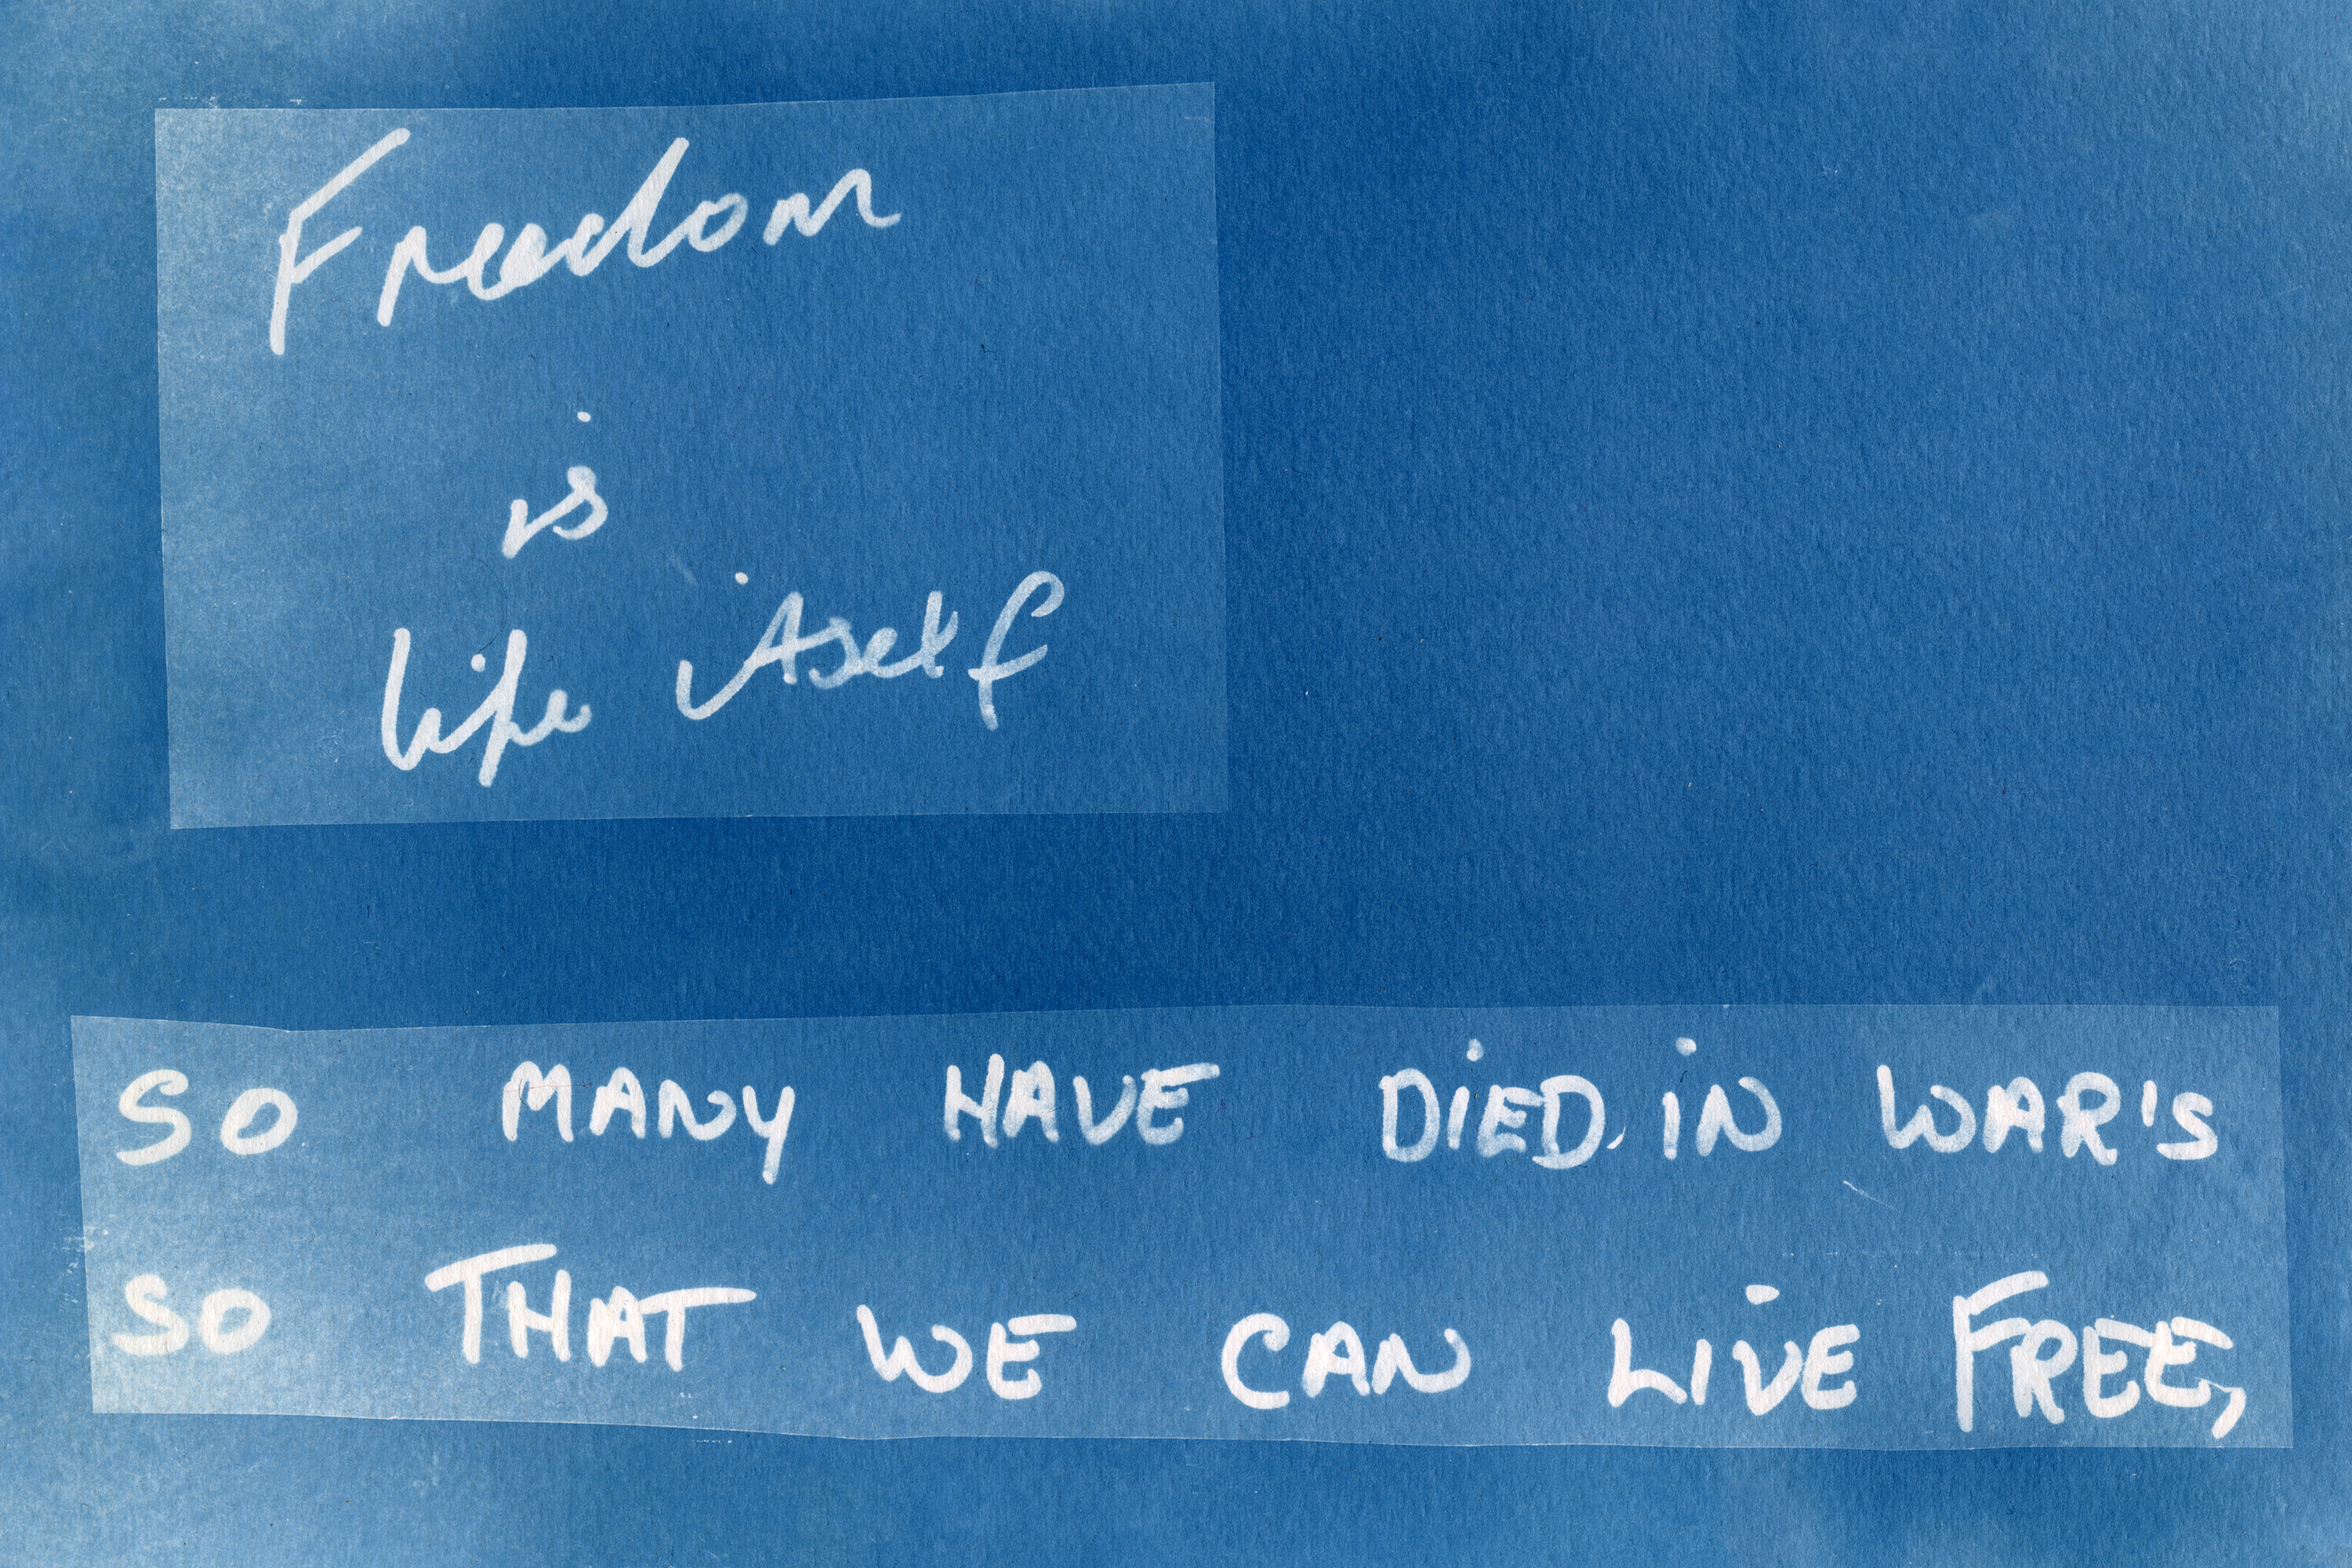 Freedom
is
life itself
SO MANY HAVE DIED. IN WAR'S
SO THAT WE CAN LIVE FREE,